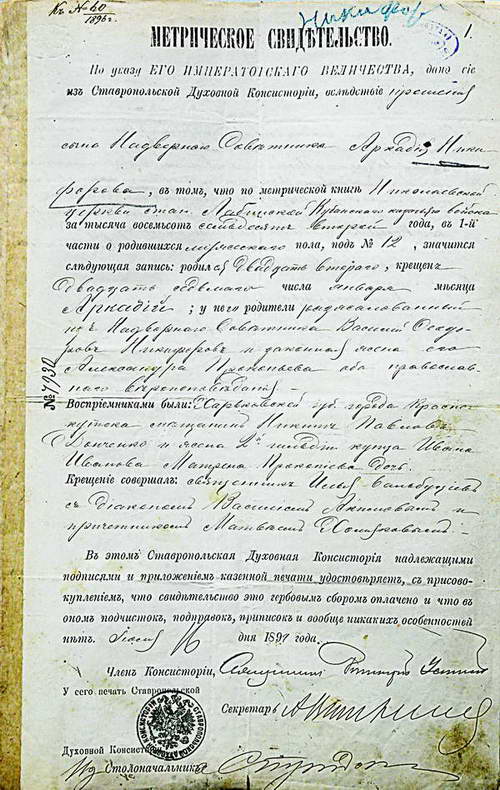 Къ № 60
1896 г.
Никифор
1.
МЕТРИЧЕСКОЕ СВИДѢТЕЛЬСТВО.
По указу ЕГО ИМПЕРАТОРСКАГО ВЕЛИЧЕСТВА, дано сіе
изъ Ставропольской Духовной Консисторіи, вслѣдствіе прошенія
сына Надворнаго Совѣтника Аркадія Ники
форова, въ томъ, что по метрической книгѣ Николаевской
церкви стан. Лабинской Кубанскаго казачьяго войска
за тысяча восемьсотъ семьдесятъ второй года, въ 1-й
части о родившихся мужескаго пола, подъ № 12, значится
слѣдующая запись: родился двадцать втораго, крещенъ
двадцать седьмаго числа января мѣсяца
Аркадій; у него родители:
Надворнаго Совѣтника Василій Ѳедо
ровъ Никифоровъ и законная жена его
Александра Прокопьева оба православ
наго вѣроисповѣданія
№ 7932
Воспріемниками были: Харьковской губ. города Красно
кутска мѣщанинъ Никита Павловъ
и жена 2й гильдіи купца Ивана
Иванова Матрена Прокопіева дочь.
Крещеніе совершалъ: священникъ Илья
съ діакономъ Василіемъ и
причетникомъ Матвѣемъ
Въ этомъ Ставропольская Духовная Консисторія надлежащими
подписями и приложеніемъ казенной печати удостовѣряетъ, съ присово-
купленіемъ, что свидѣтельство это гербовымъ сборомъ оплачено и что въ
ономъ подчистокъ, подправокъ, приписокъ и вообще никакихъ особенностей
нѣтъ. 16 дня 1897 года.
Членъ Консисторіи,
У сего печать Ставропольской
Секретарь
Духовной Консисторіи
Столоначальникъ